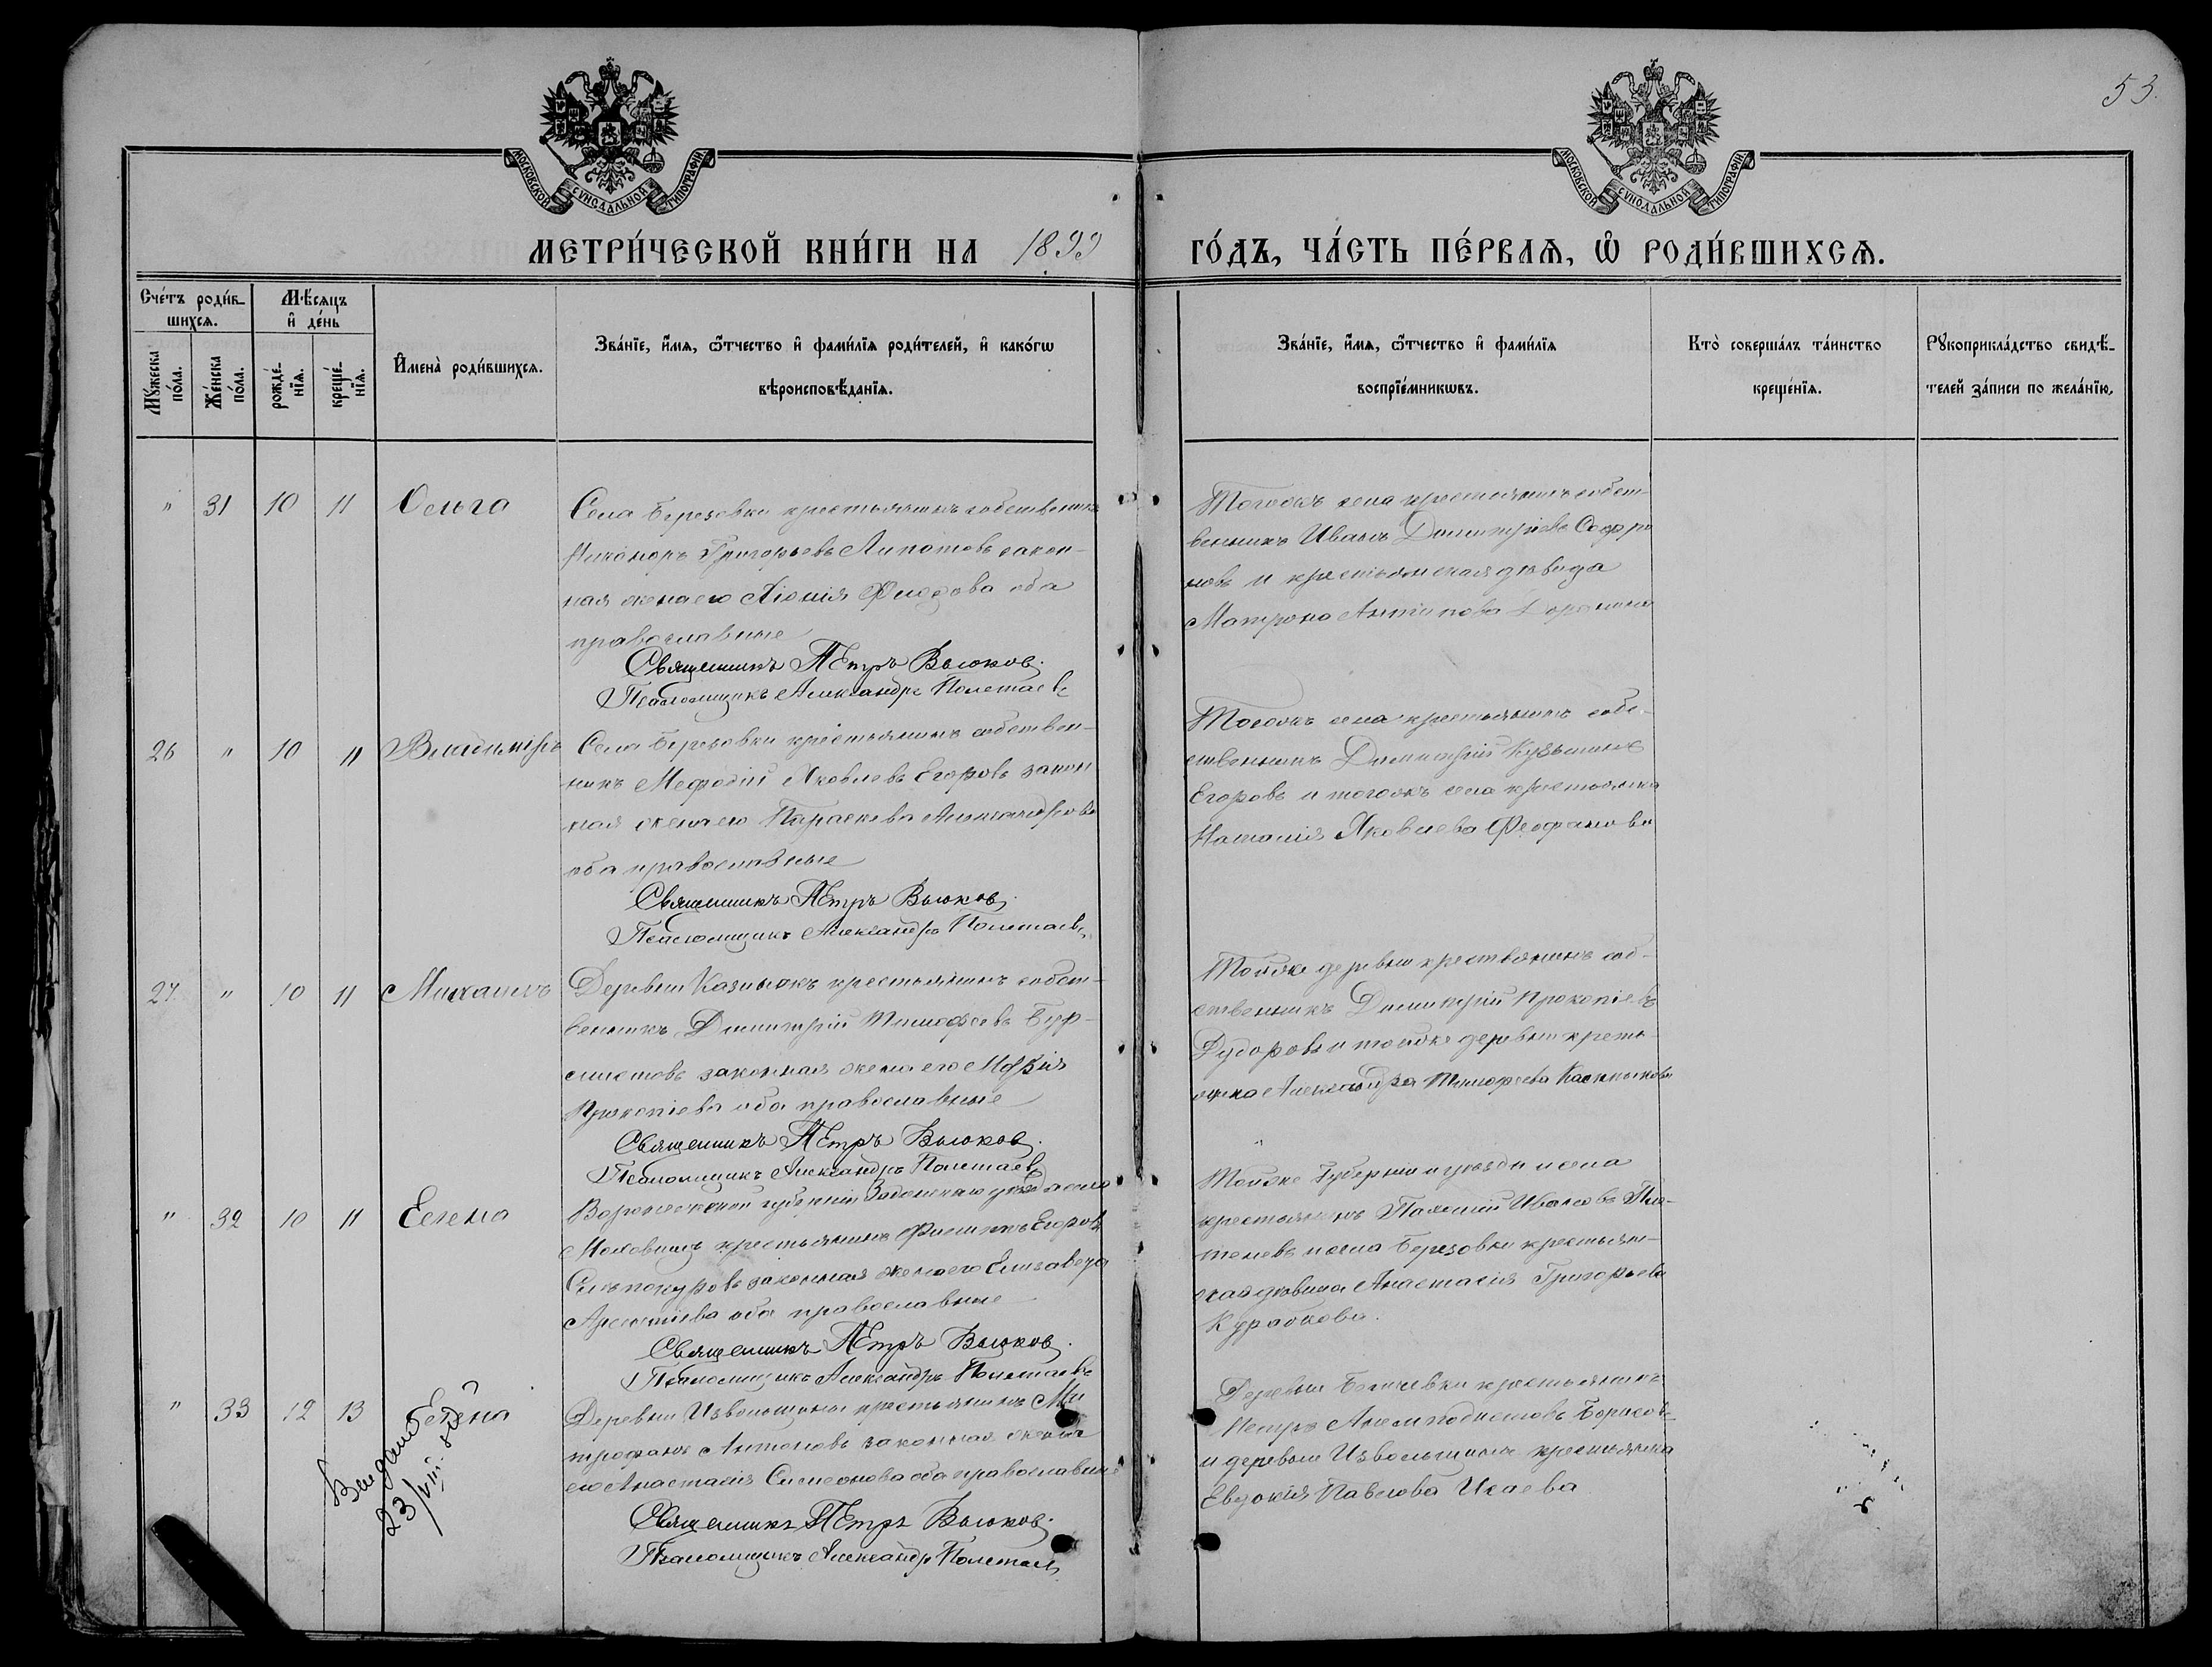 53.
МОСКОВСКОЙ СѴНОДАЛЬНОЙ ТИПОГРАФІИ.
МОСКОВСКОЙ СѴНОДАЛЬНОЙ ТИПОГРАФІИ.
МЕТРИ́ЧЕСКОЙ КНИ́ГИ НА 1899 ГО́ДЪ, ЧА́СТЬ ПЕ́РВАѦ, Ѽ РОДИ́ВШИХСѦ.
Сче́тъ роди́в-
шихсѧ.
Мѣ́сяцъ
и҆ де́нь
Мꙋ́жеска
по́ла.
Же́нска
по́ла.
рожде́-
нїѧ.
креще́-
нїѧ.
И҆мена̀ роди́вшихсѧ.
Зва́нїе, и҆́мѧ, ѻ҆́тчество и҆ фами́лїѧ роди́телей, и҆ како́гѡ
вѣроисповѣ́данїѧ.
Зва́нїе, и҆́мѧ, ѻ҆́тчество и҆ фами́лїѧ
воспрїе́мникѡвъ.
Кто̀ соверша́лъ та́инство
креще́нїѧ.
Рꙋкоприкла́дство свидѣ́-
телей за́писи по жела́нїю.
" 31 10 11 Ольга
Села Березовки крестьянинъ собственникъ
Никаноръ Григорьевъ Липатовъ закон-
ная жена его
оба
православные
Священникъ Петръ Вьюковъ.
Псаломщикъ Александръ Полетаевъ
Тогожъ села крестьянинъ собст-
венникъ Иванъ Димитріевъ Софро
новъ и крестьянская дѣвица
Матрона Антипова Доронина
26 " 10 11 Владиміръ
Села Березовки крестьянинъ собствен-
никъ Мефодій Яковлевъ Егоровъ закон
ная жена его Параскева Александрова
оба православные
Священникъ Петръ Вьюковъ.
Псаломщикъ Александръ Полетаевъ
Тогожъ села крестьянинъ соб-
ственникъ Димитрій Кузьминъ
Егоровъ и тогожъ села крестьянка
Наталія Яковлева Феофанова
27 " 10 11 Михаилъ
Деревни крестьянинъ собст-
венникъ Димитрій Тимофеевъ Бур-
мистовъ законная жена его Марія
Прокопіева оба православные
Священникъ Петръ Вьюковъ.
Псаломщикъ Александръ Полетаевъ
Тойже деревни крестьянинъ соб-
ственникъ Димитрій Прокопіевъ
Дудоровъ и тойже деревни кресть-
янка Александра Тимофеева
" 32 10 11 Елена
Воронежской губерніи Задонскаго уѣзда села
крестьянинъ Филиппъ Егоровъ
законная жена его Елизавета
оба православные
Священникъ Петръ Вьюковъ.
Псаломщикъ Александръ Полетаевъ
Тойже Губерніи и уѣзда и села
крестьянинъ Ивановъ Пля-
теневъ и села Березовки крестьян-
ская дѣвица Анастасія Григорьева
Курабкова.
" 33 12 13 Елена
Выдано
23/VIII
Деревни Извольщины крестьянинъ Ми
трофанъ Антоновъ законная жена
его Анастасія Симеонова оба православные
Священникъ Петръ Вьюковъ.
Псаломщикъ Александръ Полетаевъ
Деревни Богачевки крестьянинъ
Петръ Анемподистовъ Борисовъ
и деревни Извольщины крестьянка
Евдокія Павлова Исаева